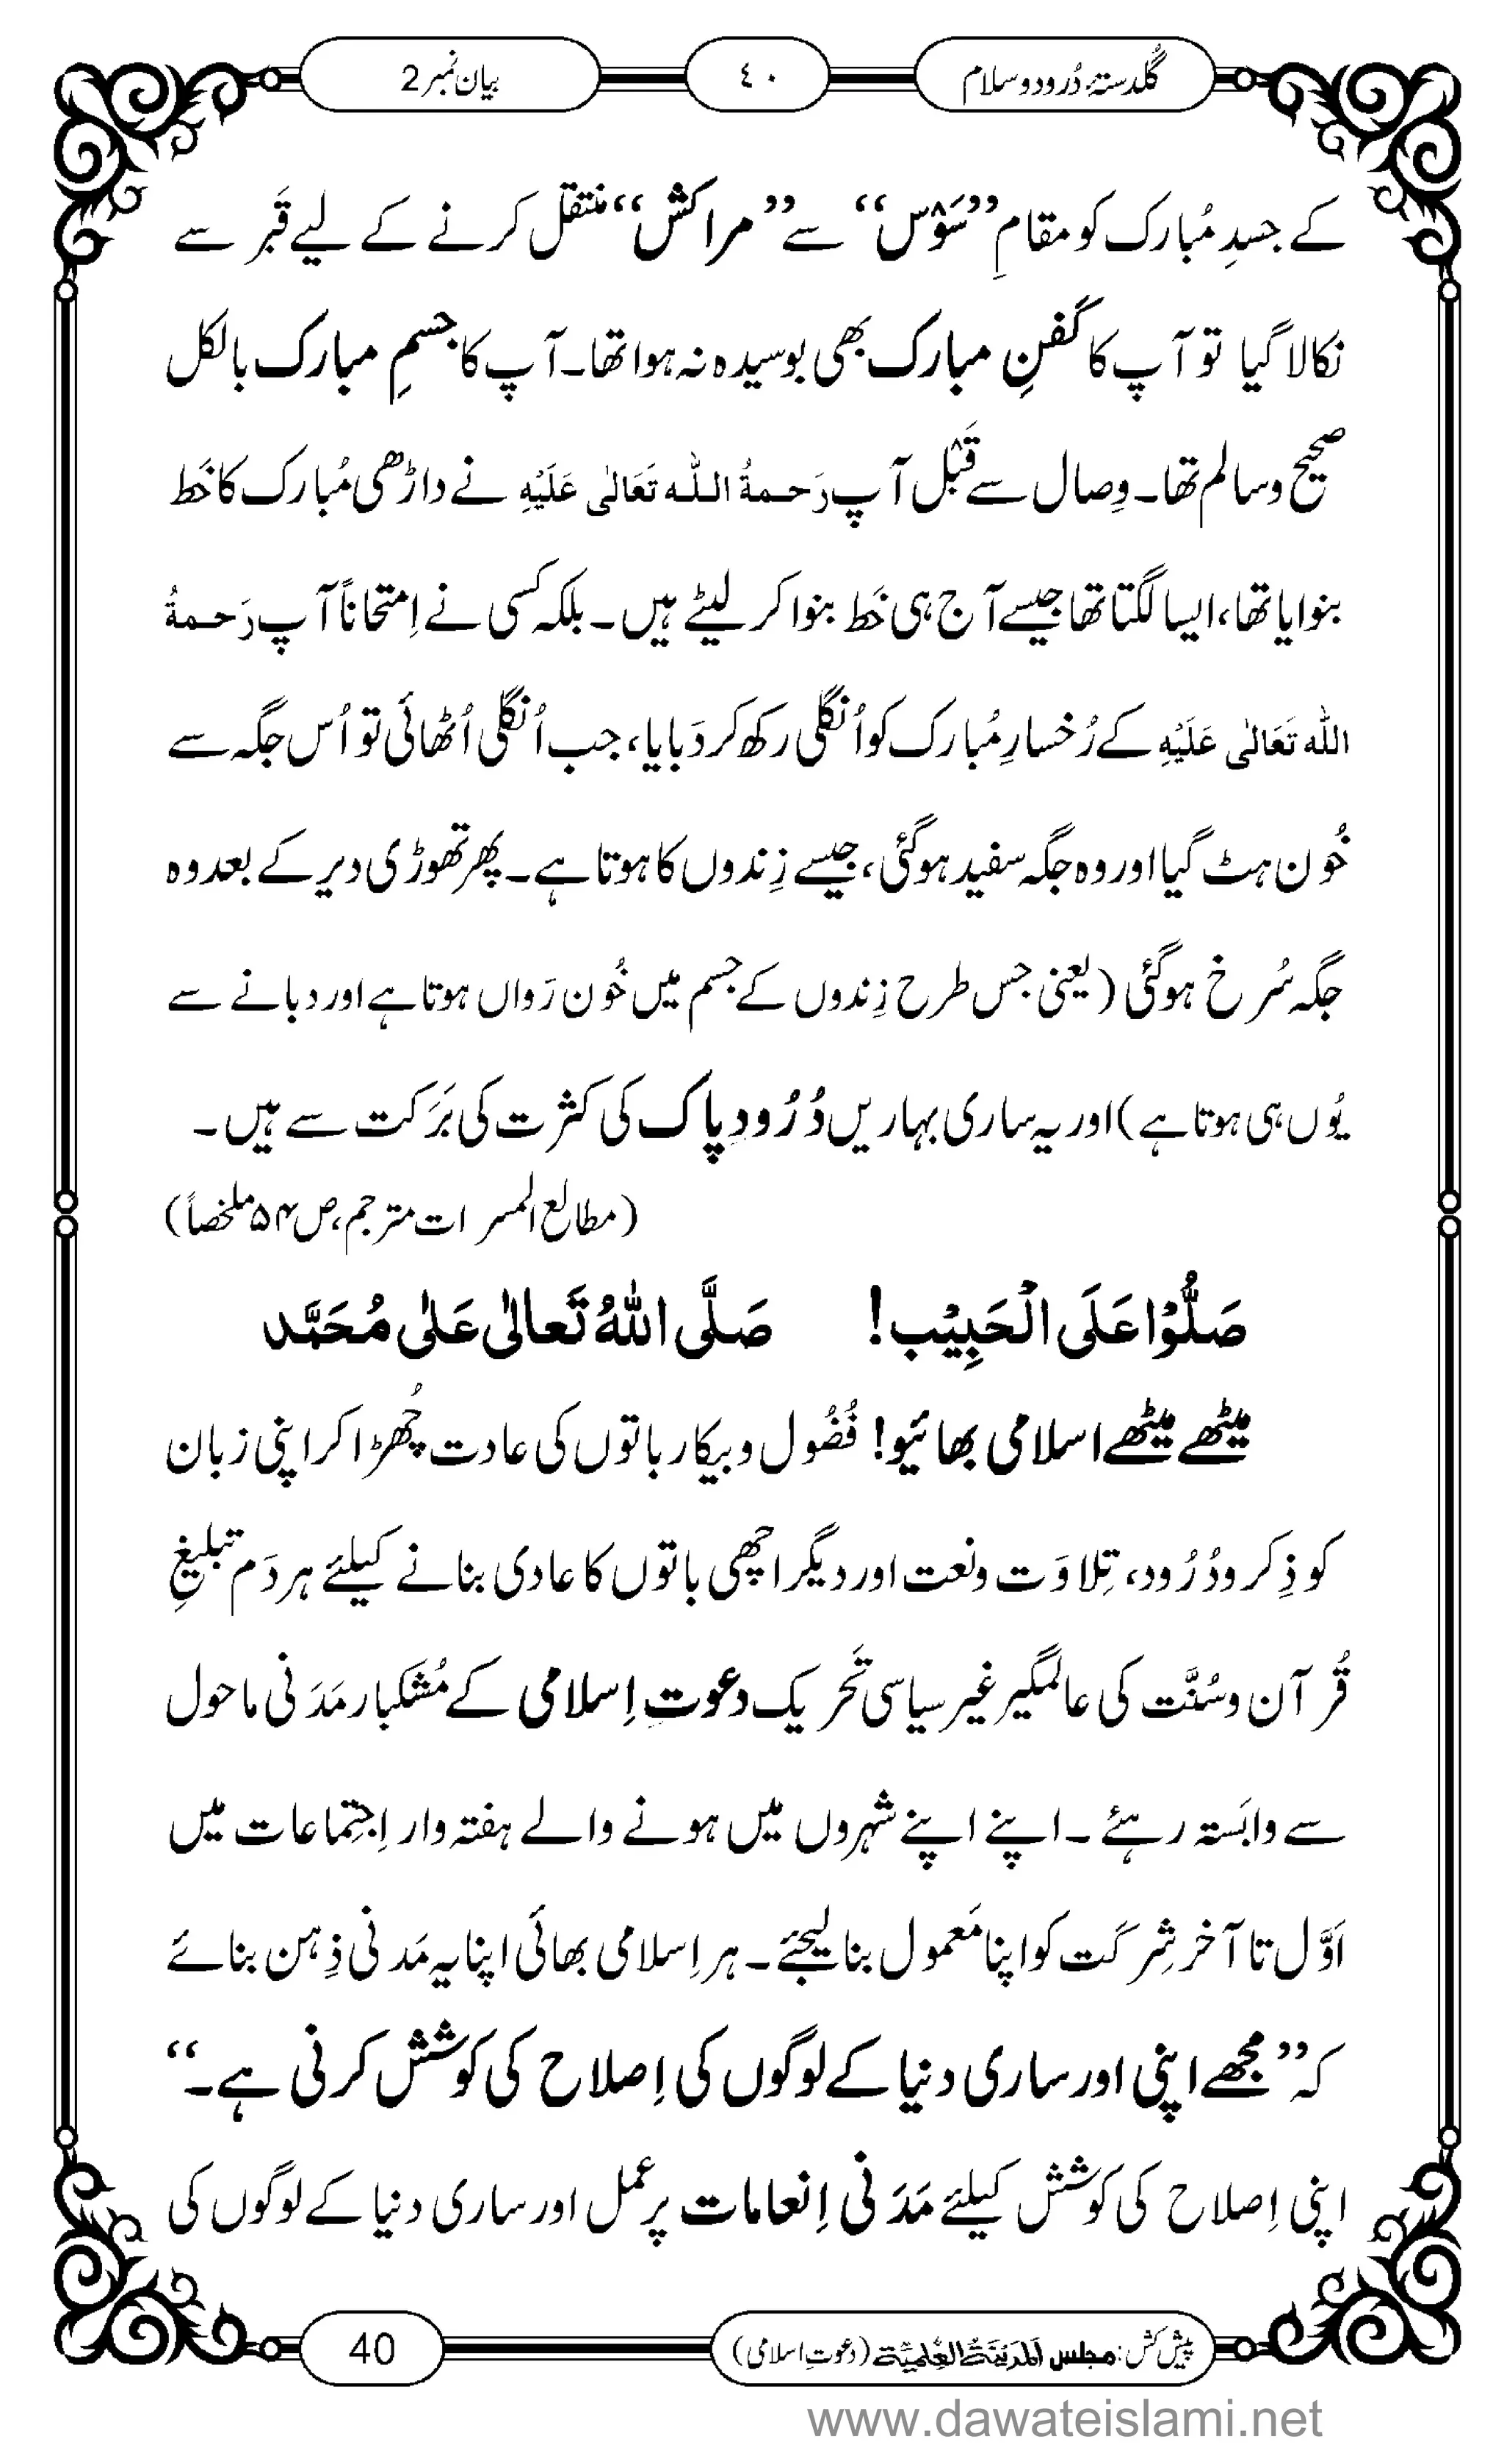 گلدستۂ دُرود و سلام
٤٠
بیان نمبر 2
کے جسدِ مُبارک کو مقامِ ’’سَوْس‘‘ سے ’’مراکش‘‘ منتقل کرنے کے لیے قَبر سے
نکالا گیا تو آپ کا کفنِ مبارک بھی بوسیدہ نہ ہوا تھا۔ آپ کا جسمِ مبارک بالکل
صحیح و سالم تھا۔ وِصال سے قَبْل آپ رَحمةُ اللّٰہ تَعَالٰی عَلَیْهِ نے داڑھی مُبارک کا خَط
بنوایا تھا، ایسا لگتا تھا جیسے آج ہی خَط بنوا کر لیٹے ہیں۔ بلکہ کسی نے اِمتحاناً آپ رَحمةُ
اللّٰہ تَعَالٰی عَلَیْهِ کے رُخسارِ مُبارک کو اُنگلی رکھ کر دَبایا، جب اُنگلی اُٹھائی تو اُس جگہ سے
خُون ہٹ گیا اور وہ جگہ سفید ہوگئی، جیسے زِندوں کا ہوتا ہے۔ پھر تھوڑی دیر کے بعد وہ
جگہ سُرخ ہوگئی (یعنی جس طرح زِندوں کے جسم میں خُون رَواں ہوتا ہے اور دبانے سے
یُوں ہی ہوتا ہے) اور یہ ساری بہاریں دُرُودِ پاک کی کثرت کی بَرَکت سے ہیں۔
(مطالع المسرات مترجم، ص۵۴ ملخصاً)
صَلُّوْا عَلَی الْحَبِیْب! صَلَّی اللّٰهُ تَعالٰی عَلٰی مُحَمَّد
میٹھے میٹھے اسلامی بھائیو! فُضُول و بیکار باتوں کی عادت چُھڑا کر اپنی زبان
کو ذِکر و دُرُود، تِلاوَت و نعت اور دیگر اچھی باتوں کا عادی بنانے کیلئے ہر دَم تبلیغِ
قُرآن و سُنَّت کی عالمگیر غیر سیاسی تَحریک دعوتِ اِسلامی کے مُشکبار مَدَنی ماحول
سے وابَستہ رہئے۔ اپنے اپنے شہروں میں ہونے والے ہفتہ وار اِجتِماعات میں
اَوَّل تا آخر شِرکَت کو اپنا مَعمول بنا لیجئے۔ ہر اِسلامی بھائی اپنا یہ مَدَنی ذِہن بنائے
کہ ’’مجھے اپنی اور ساری دنیا کے لوگوں کی اِصلاح کی کوشش کرنی ہے۔‘‘
اپنی اِصلاح کی کوشش کیلئے مَدَنی اِنعامات پر عمل اور ساری دنیا کے لوگوں کی
پیش کش: مجلس اَلْمَدِیْنَةُ الْعِلْمِیَّة (دعوتِ اسلامی)
40
www.dawateislami.net